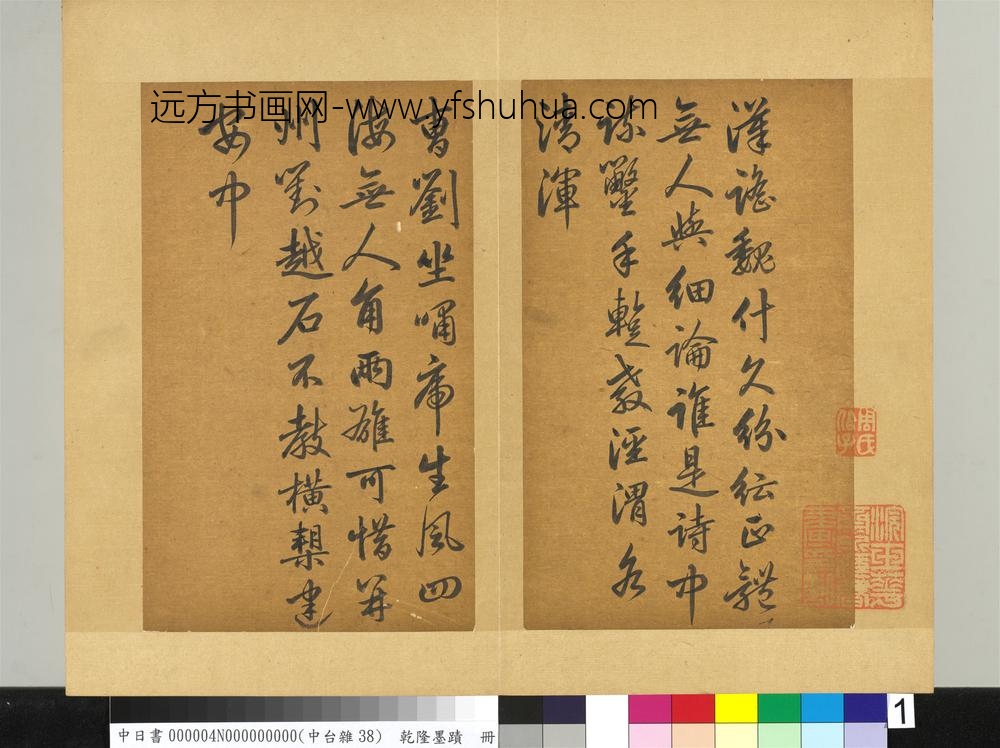 远方书画网-www.yfshuhua.com
漢謠魏什久紛紜正體
無人與細論誰是詩中
疏鑿手暫教涇渭各
清渾
曹劉坐嘯虎生風四
海無人角兩雄可惜并
州劉越石不教橫槊建
安中
周氏
中日書 000004N000000000(中台雜 38) 乾隆墨蹟 冊
1